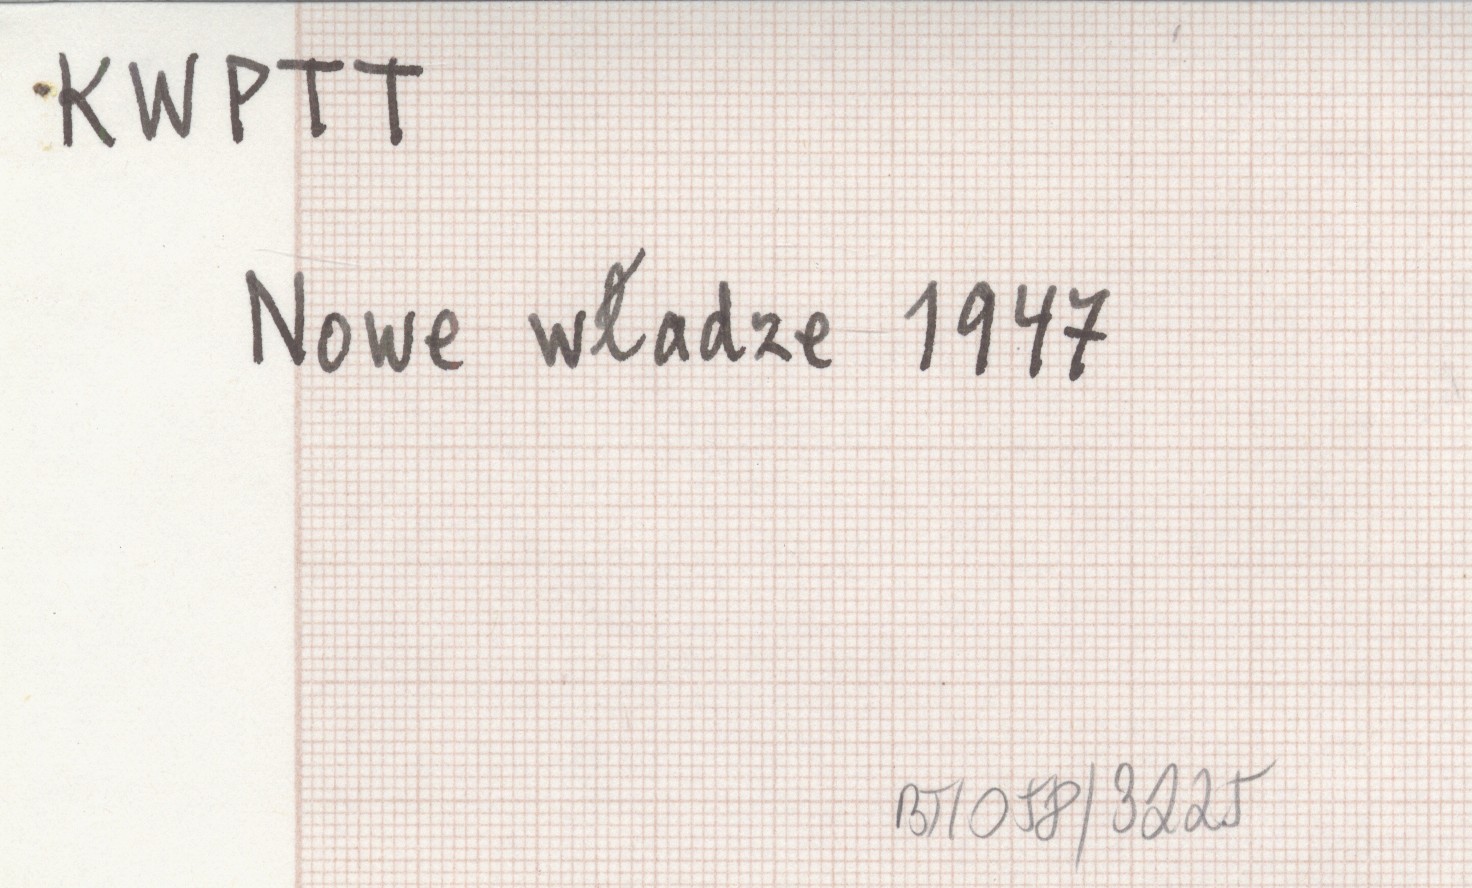 KWPTT
Nowe władze 1947
BT/058/3225